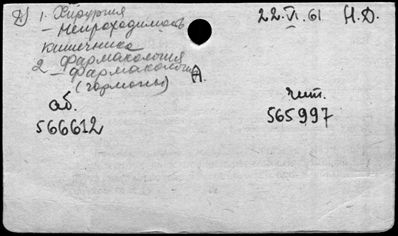 1. Хирургия
22.VI.61 Н.Д.
– Непроходимость
кишечника
2. Фармакология
– Фармакология
(гормоны)
А.
аб. чит.
566612 565997